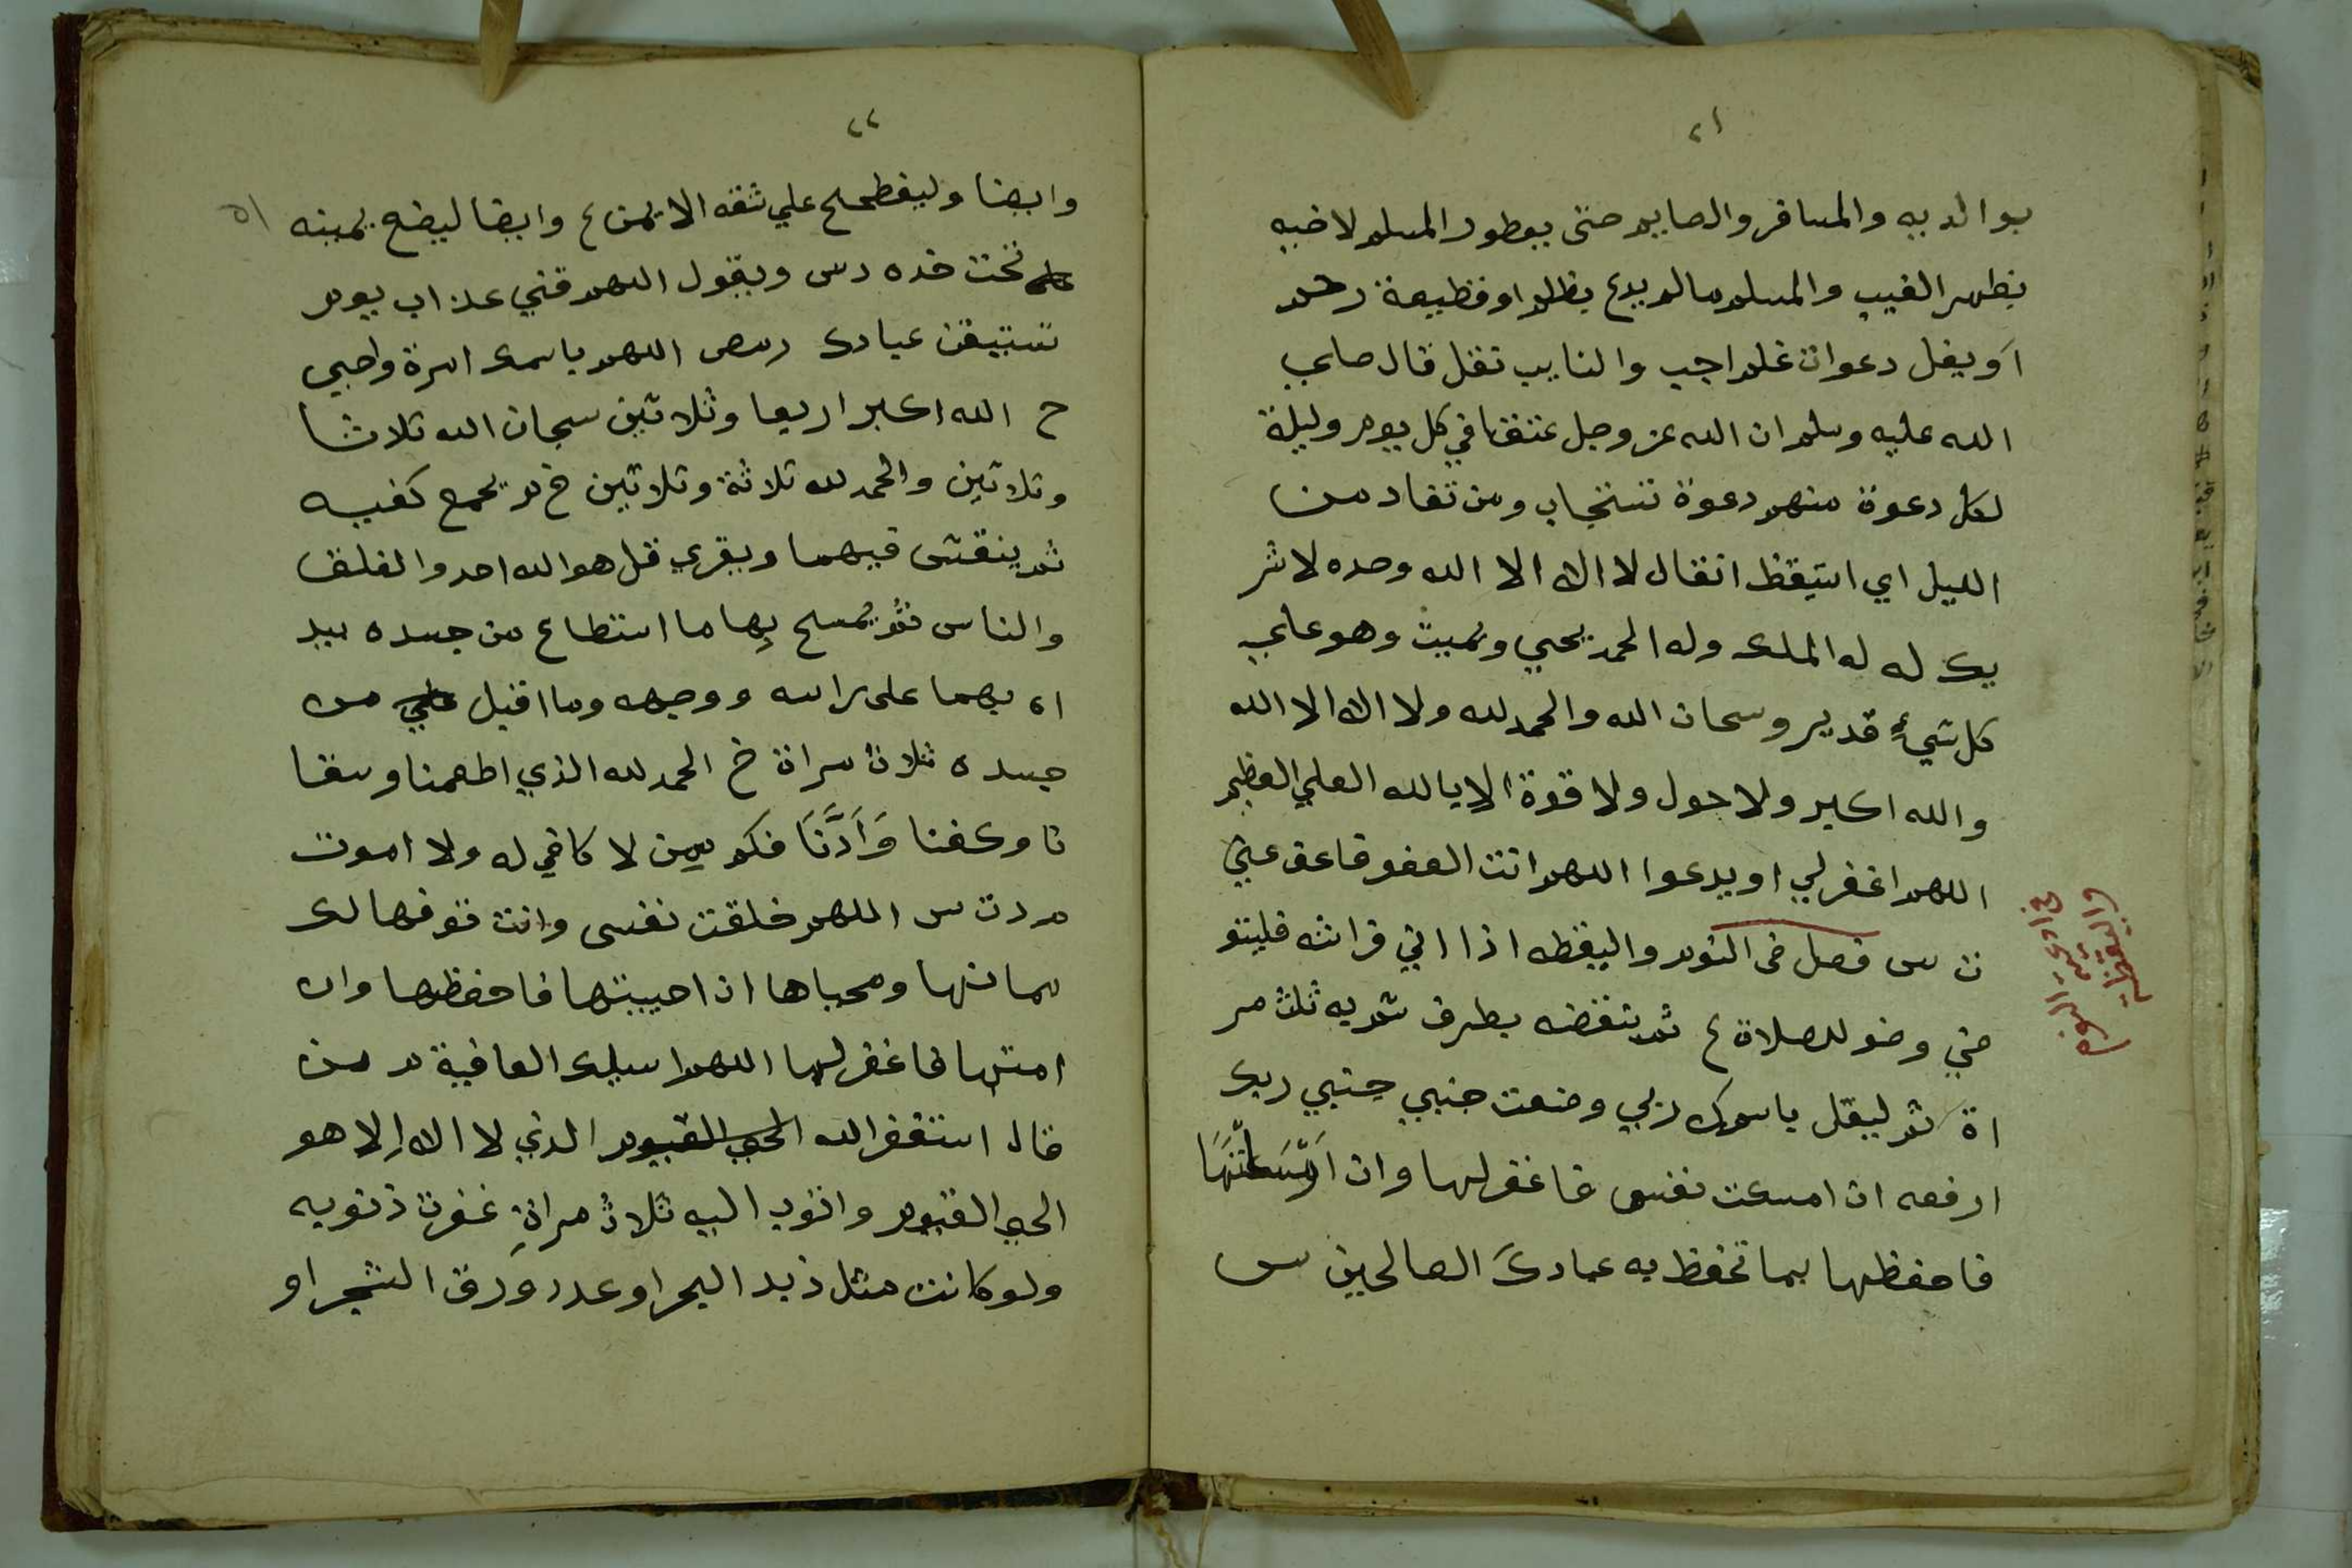 ٢١
بوالديه والمسافر والصايم حتى يفطر والمسلم لاخيه
بظهر الغيب والمسلم مالم يدع بظلم او قطيعة رحم
او يقل دعوات فلم اجب والتايب تقل قال صلي
الله عليه وسلم ان الله عز وجل عتقا في كل يوم وليلة
لكل دعوة منهم دعوة تستجاب ومن تعار من
الليل اي استيقظ اتقال لا اله الا الله وحده لا شر
يك له له الملك وله الحمد يحيي ويميت وهو علي
كل شيء قدير وسبحان الله والحمد لله ولا اله الا الله
والله اكبر ولا حول ولا قوة الا بالله العلي العظيم
اللهم اغفر لي او يدعوا اللهم انت العفو فاعف عني
ت س فصل في النوم واليقظه اذا اتي فراشه فليتو
ضي وضو للصلاة ع ثم ينفضه بطرف ثوبه ثلاث مر
اة ثم ليقل باسمك ربي وضعت جنبي جنبي وبك
ارفعه ان امسكت نفسي فاغفر لها وان ارسلتها
فاحفظها بما تحفظ به عبادك الصالحين س
في ادعية النوم
واليقظة
٢٢
وايضا وليضطجع علي شقه الايمن ع وايضا ليضع يمينه
تحت خده دس ويقول اللهم قني عذاب يوم
تبعث عبادك رمص اللهم باسمك امرة واحيي
ح الله اكبر اربعا وثلاثين سبحان الله ثلاثا
وثلاثين والحمد لله ثلاثة وثلاثين خ م يجمع كفيه
ثم ينفث فيهما ويقري قل هو الله احد والفلق
والناس ثم يمسح بها ما استطاع من جسده يبد
اه بهما على راسه ووجهه وما اقبل علي من
جسده ثلاث مراة خ الحمد لله الذي اطعمنا وسقا
نا وكفنا وَاَدَّنَا فكم ممن لا كافي له ولا اموت
م د ت س اللهم خلقت نفسي وانت توفها لك
مماتها ومحياها ان احييتها فاحفظها وان
امتها فاغفر لها اللهم اسيلك العافية م من
قال استغفر الله الحي القيوم الذي لا اله الا هو
الحي القيوم واتوب اليه ثلاث مراة غفرت ذنوبه
ولو كانت مثل زبد البحر او عدد ورق الشجر او